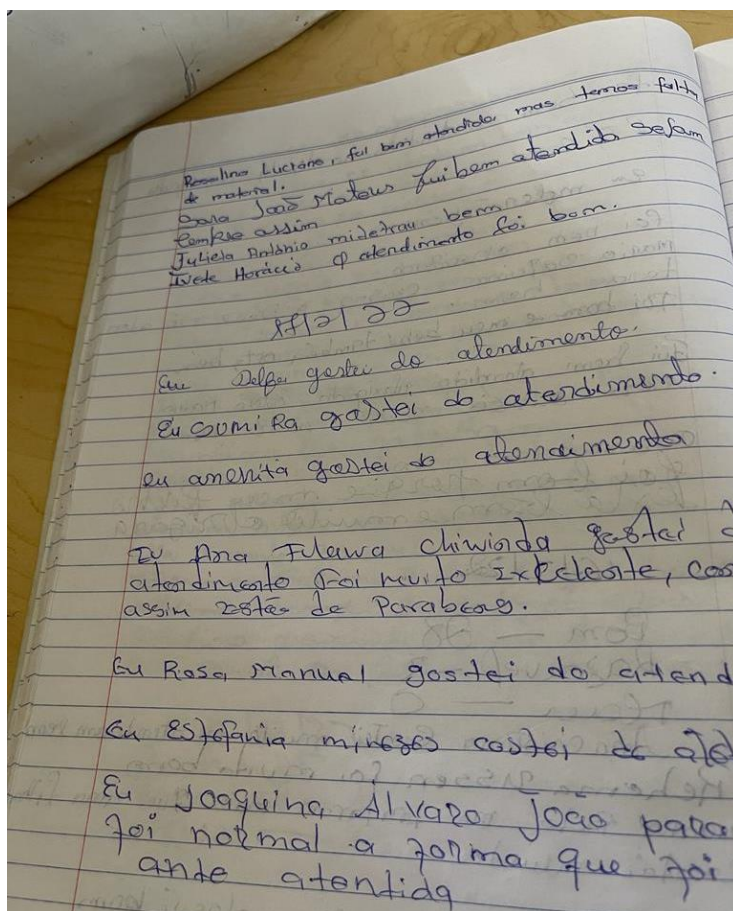 Rosalina Luciano, fui bem atendida mas temos falta
de material.
Sara João Mateus fuibem atendida sefam
sempre assim
Julieta António bem
Ivete Horácio O atendimento foi bom.
Eu Delfa gostei do atendimento.
Eu SUMIRA gastei do atendimento.
eu anchita gostei do atencimento
EU Ana Fulawa Chiwinda gostei
atendimento foi muito Exkelente,
assim Estão de Parabens.
Eu Rosa Manual gostei do atend
Eu Estefania minezes costei do ate
Eu Joaquina Alvaro João para
foi normal a forma que foi
ante atentida